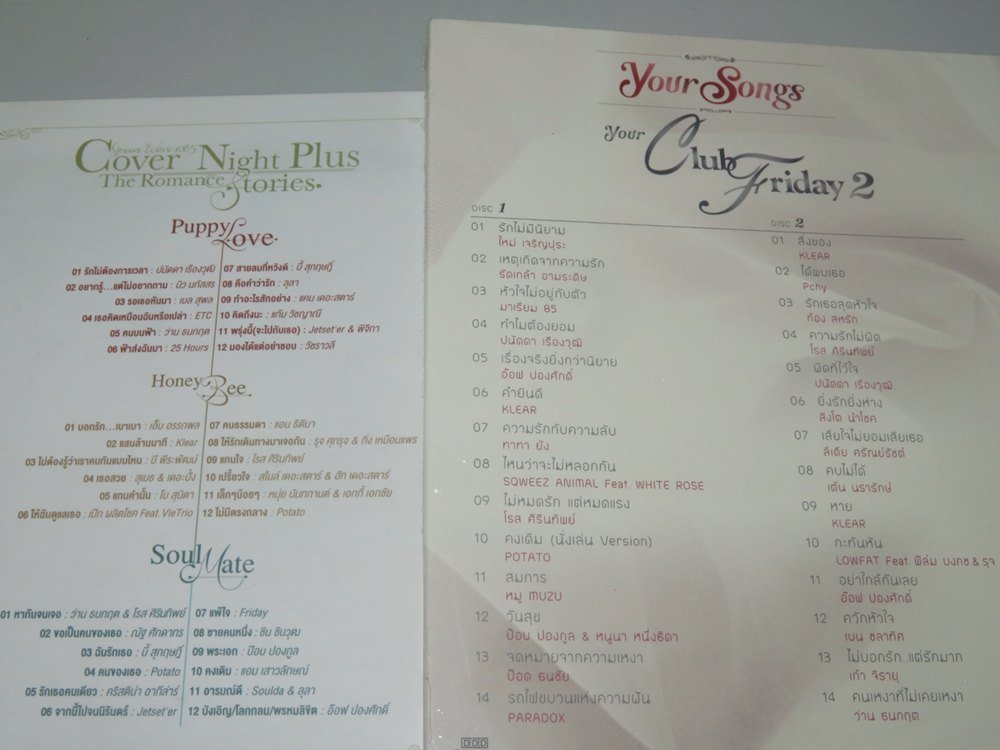 Green Wave 106.5
Cover Night Plus
The Romance Stories
Puppy Love
01 รักไม่ต้องการเวลา : ปนัดดา เรืองวุฒิ
02 อยากรู้...แต่ไม่อยากถาม : นิว นภัสสร
03 รอเธอหันมา : เบล สุพล
04 เธอคิดเหมือนฉันหรือเปล่า : ETC
05 คนบนฟ้า : ว่าน ธนกฤต
06 ฟ้าส่งฉันมา : 25 Hours
07 สายลมที่หวังดี : บี้ สุกฤษฎิ์
08 คือคำว่ารัก : ลุลา
09 ทำอะไรสักอย่าง : แคน เดอะสตาร์
10 คิดถึงนะ : แก้ม วิชญาณี
11 พรุ่งนี้(จะไปกับเธอ) : Jetset'er & พิจิกา
12 มองได้แต่อย่าชอบ : วัชราวลี
Honey Bee
01 บอกรัก...เบาเบา : เอ็ม อรรถพล
02 แสนล้านนาที : Klear
03 ไม่ต้องรู้ว่าเราคบกันแบบไหน : บี พีระพัฒน์
04 เธอสวย : สุเมธ & เดอะปั๋ง
05 แทนคำนั้น : โบ สุนิตา
06 ให้ฉันดูแลเธอ : เป๊ก ผลิตโชค Feat.VieTrio
07 คนธรรมดา : แอน ธิติมา
08 ให้รักเดินทางมาเจอกัน : รุจ ศุภรุจ & กิ่ง เหมือนแพร
09 แทนใจ : โรส ศิรินทิพย์
10 เปรี้ยวใจ : สไมล์ เดอะสตาร์ & ฮัท เดอะสตาร์
11 เล็กๆน้อยๆ : หนุ่ย นันทกานต์ & เอกกี้ เอกชัย
12 ไม่มีตรงกลาง : Potato
Soul Mate
01 หากันจนเจอ : ว่าน ธนกฤต & โรส ศิรินทิพย์
02 ขอเป็นคนของเธอ : ณัฐ ศักดาทร
03 ฉันรักเธอ : บี้ สุกฤษฎิ์
04 คนของเธอ : Potato
05 รักเธอคนเดียว : คริสติน่า อากีล่าร์
06 จากนี้ไปจนนิรันดร์ : Jetset'er
07 แพ้ใจ : Friday
08 ชายคนหนึ่ง : ชิน ชินวุฒ
09 พระเอก : ป๊อบ ปองกูล
10 คงเดิม : แอม เสาวลักษณ์
11 อารมณ์ดี : Soulda & ลุลา
12 บังเอิญ/โลกกลม/พรหมลิขิต : อ๊อฟ ปองศักดิ์
Your Songs
Your Club Friday 2
DISC 1
01 รักไม่มีนิยาม
ใหม่ เจริญปุระ
02 เหตุเกิดจากความรัก
รัดเกล้า อามระดิษ
03 หัวใจไม่อยู่กับตัว
มาเรียม B5
04 ทำไมต้องยอม
ปนัดดา เรืองวุฒิ
05 เรื่องจริงยิ่งกว่านิยาย
อ๊อฟ ปองศักดิ์
06 คำยินดี
KLEAR
07 ความรักกับความลับ
ทาทา ยัง
08 ไหนว่าจะไม่หลอกกัน
SQWEEZ ANIMAL Feat. WHITE ROSE
09 ไม่หมดรัก แต่หมดแรง
โรส ศิรินทิพย์
10 คงเดิม (นั่งเล่น Version)
POTATO
11 สมการ
หมู MUZU
12 วันสุข
ป๊อบ ปองกูล & หนูนา หนึ่งธิดา
13 จดหมายจากความเหงา
ป๊อด ธนชัย
14 รถไฟขบวนแห่งความฝัน
PARADOX
DISC 2
01 สิ่งของ
KLEAR
02 ได้พบเธอ
Pchy
03 รักเธอสุดหัวใจ
ก้อง สหรัถ
04 ความรักไม่ผิด
โรส ศิรินทิพย์
05 ผิดที่ไว้ใจ
ปนัดดา เรืองวุฒิ
06 ยิ่งรักยิ่งห่าง
สิงโต นำโชค
07 เสียใจไม่ยอมเสียเธอ
ลีเดีย ศรัณย์รัชต์
08 คบไม่ได้
เต้น นรารักษ์
09 หาย
KLEAR
10 กะทันหัน
LOWFAT Feat. ฟิล์ม บงกช & รุจ
11 อย่าใกล้กันเลย
อ๊อฟ ปองศักดิ์
12 ควักหัวใจ
เบน ชลาทิศ
13 ไม่บอกรัก...แต่รักมาก
เก้า จิรายุ
14 คนเหงาที่ไม่เคยเหงา
ว่าน ธนกฤต
DDD